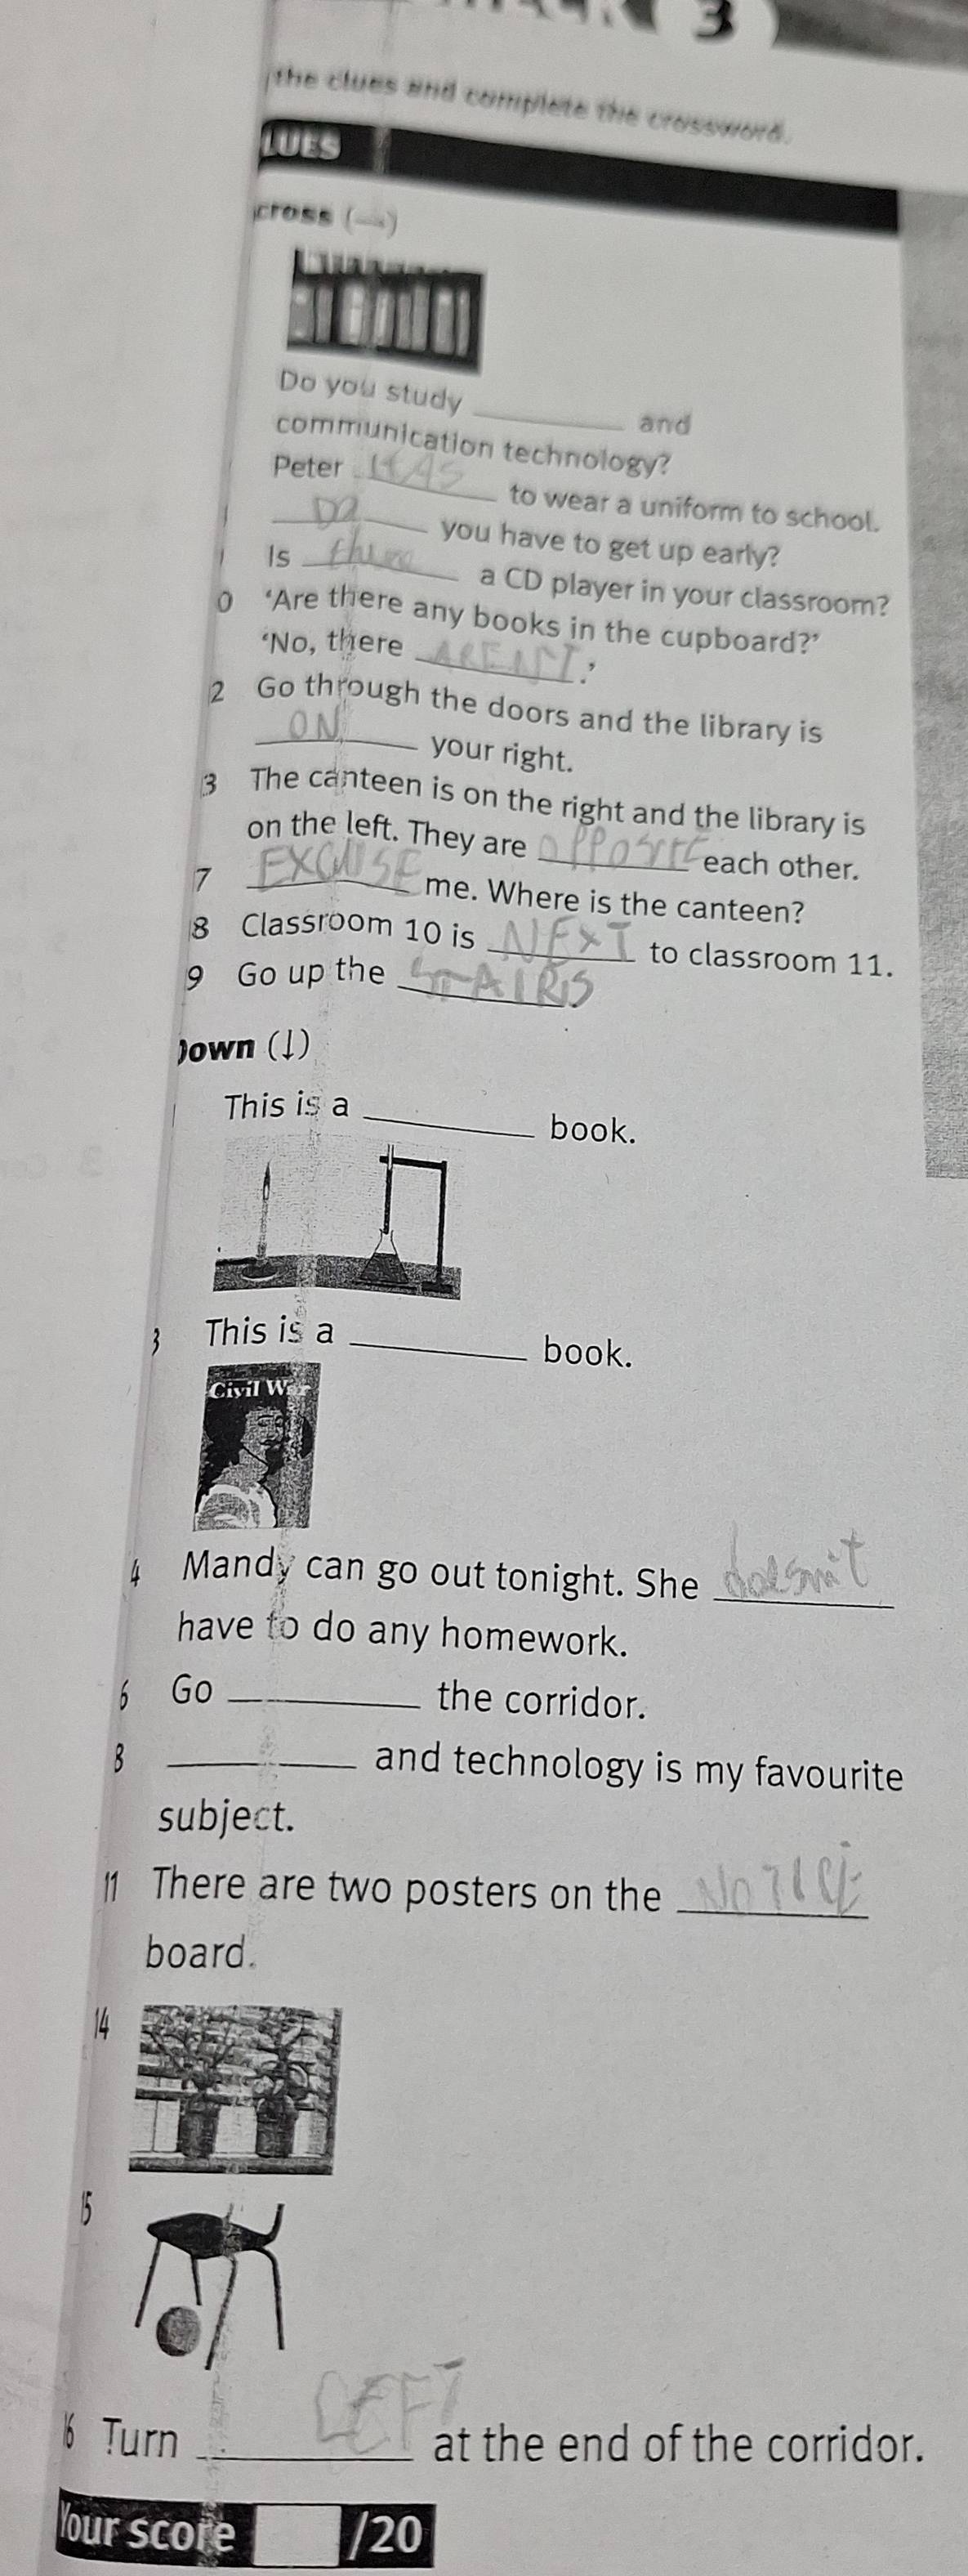 3
the clues and complete the crossword.
LUES
cross (→)
Do you study ________ and
communication technology?
Peter HAS to wear a uniform to school.
DO you have to get up early?
Is there a CD player in your classroom?
0 ‘Are there any books in the cupboard?’
‘No, there AREN'T.’
2 Go through the doors and the library is
ON your right.
3 The canteen is on the right and the library is
on the left. They are OPPOSITE each other.
7 EXCUSE me. Where is the canteen?
8 Classroom 10 is NEXT to classroom 11.
9 Go up the STAIRS.
Down (↓)
This is a ________ book.
3 This is a ________ book.
Civil War
4 Mandy can go out tonight. She doesn't
have to do any homework.
6 Go ________ the corridor.
8 ________ and technology is my favourite
subject.
11 There are two posters on the NOTICE
board.
14
15
16 Turn LEFT at the end of the corridor.
Your score /20